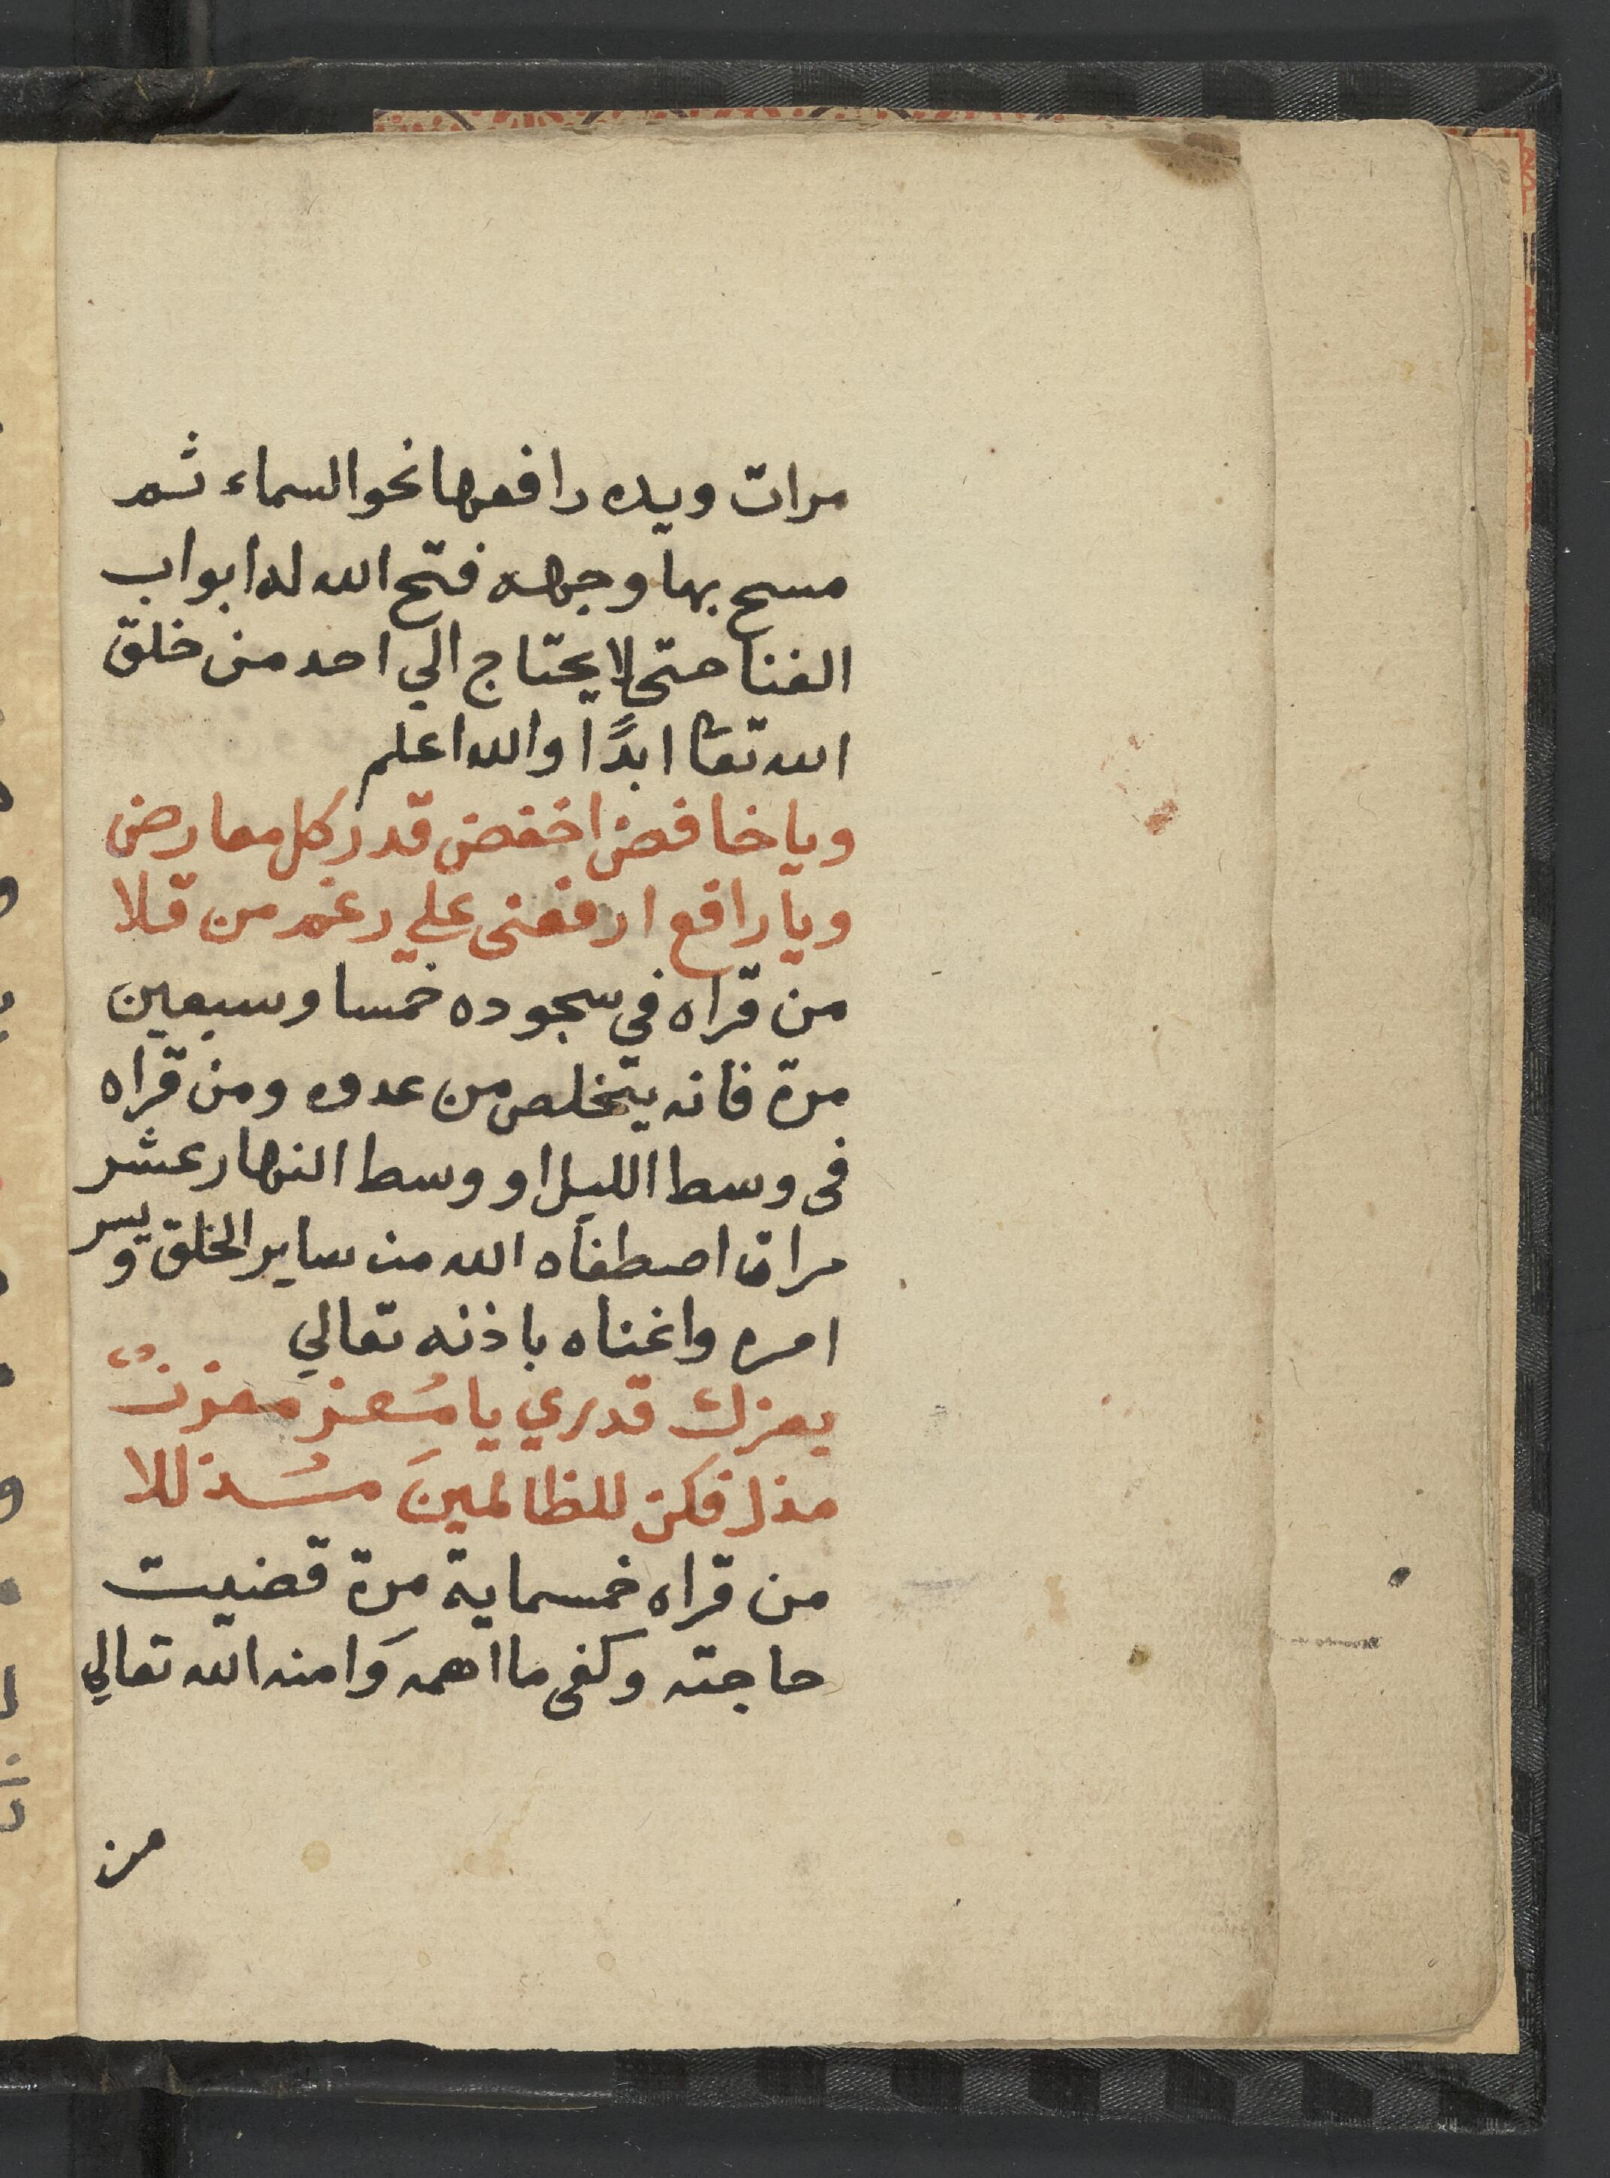 مرات ويده رافعها نحو السماء ثم
مسح بها وجهه فتح الله له ابواب
الغنا حتى لا يحتاج الي احد من خلق
الله تعا ابدًا والله اعلم
ويا خافض اخفض قدر كل معارض
ويا رافع ارفعنى علي رغم من قلا
من قراه في سجوده خمسا وسبعين
مرة فانه يتخلص من عدوه ومن قراه
فى وسط الليل او وسط النهار عشر
مرات اصطفاه الله من ساير الخلق ويسر
امره واغناه باذنه تعالي
بعزك قدري يا مُعز معزز
مذل فكن للظالمينَ مُذللا
من قراه خمسماية مرة قضيت
حاجته وكفى ما اهمه وَامنه الله تعالي
من